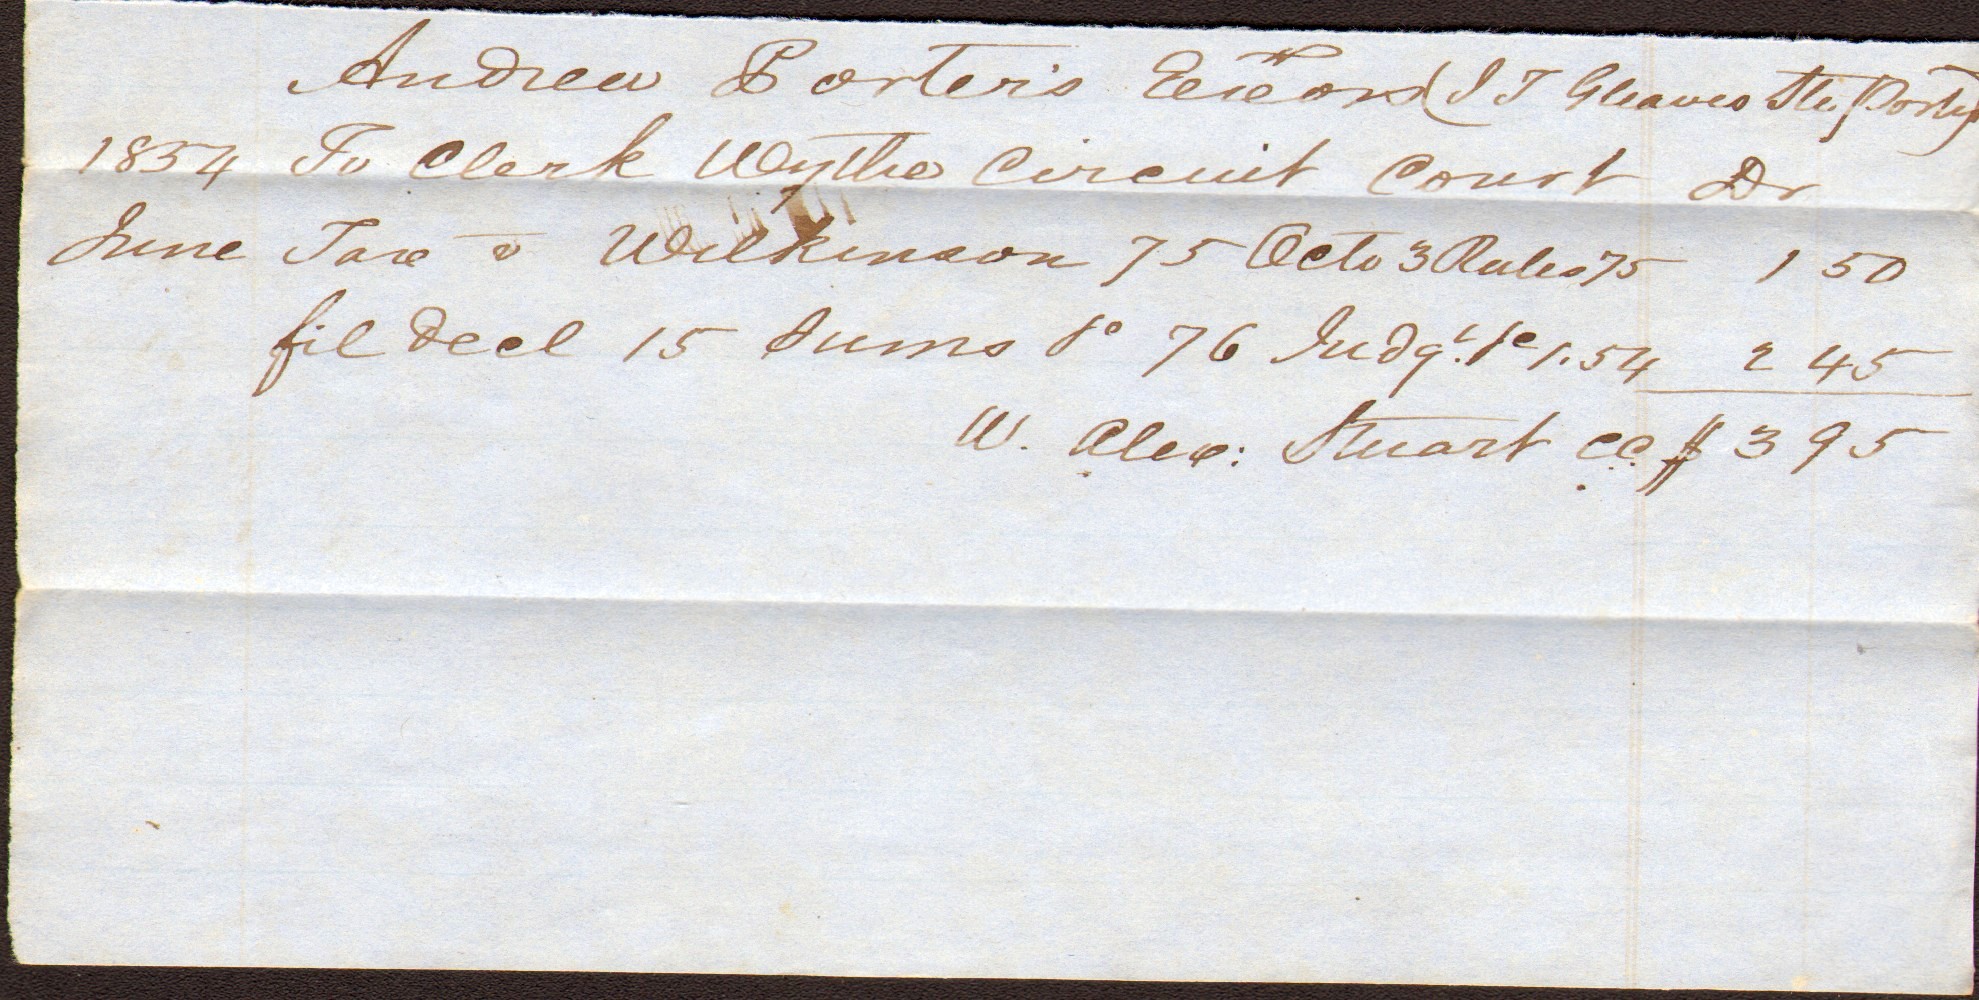 Andrew Porter's Exetors (I T Gleaves
1854 To Clerk Wythe Circuit Court Dr
June Tax v Wilkinson 75 Octo 3 Rules 75 1 50
fil decl 15 Sums &c 76 Judgt. &c 1.54 2 45
W. Alex: Stuart cc $ 3 95